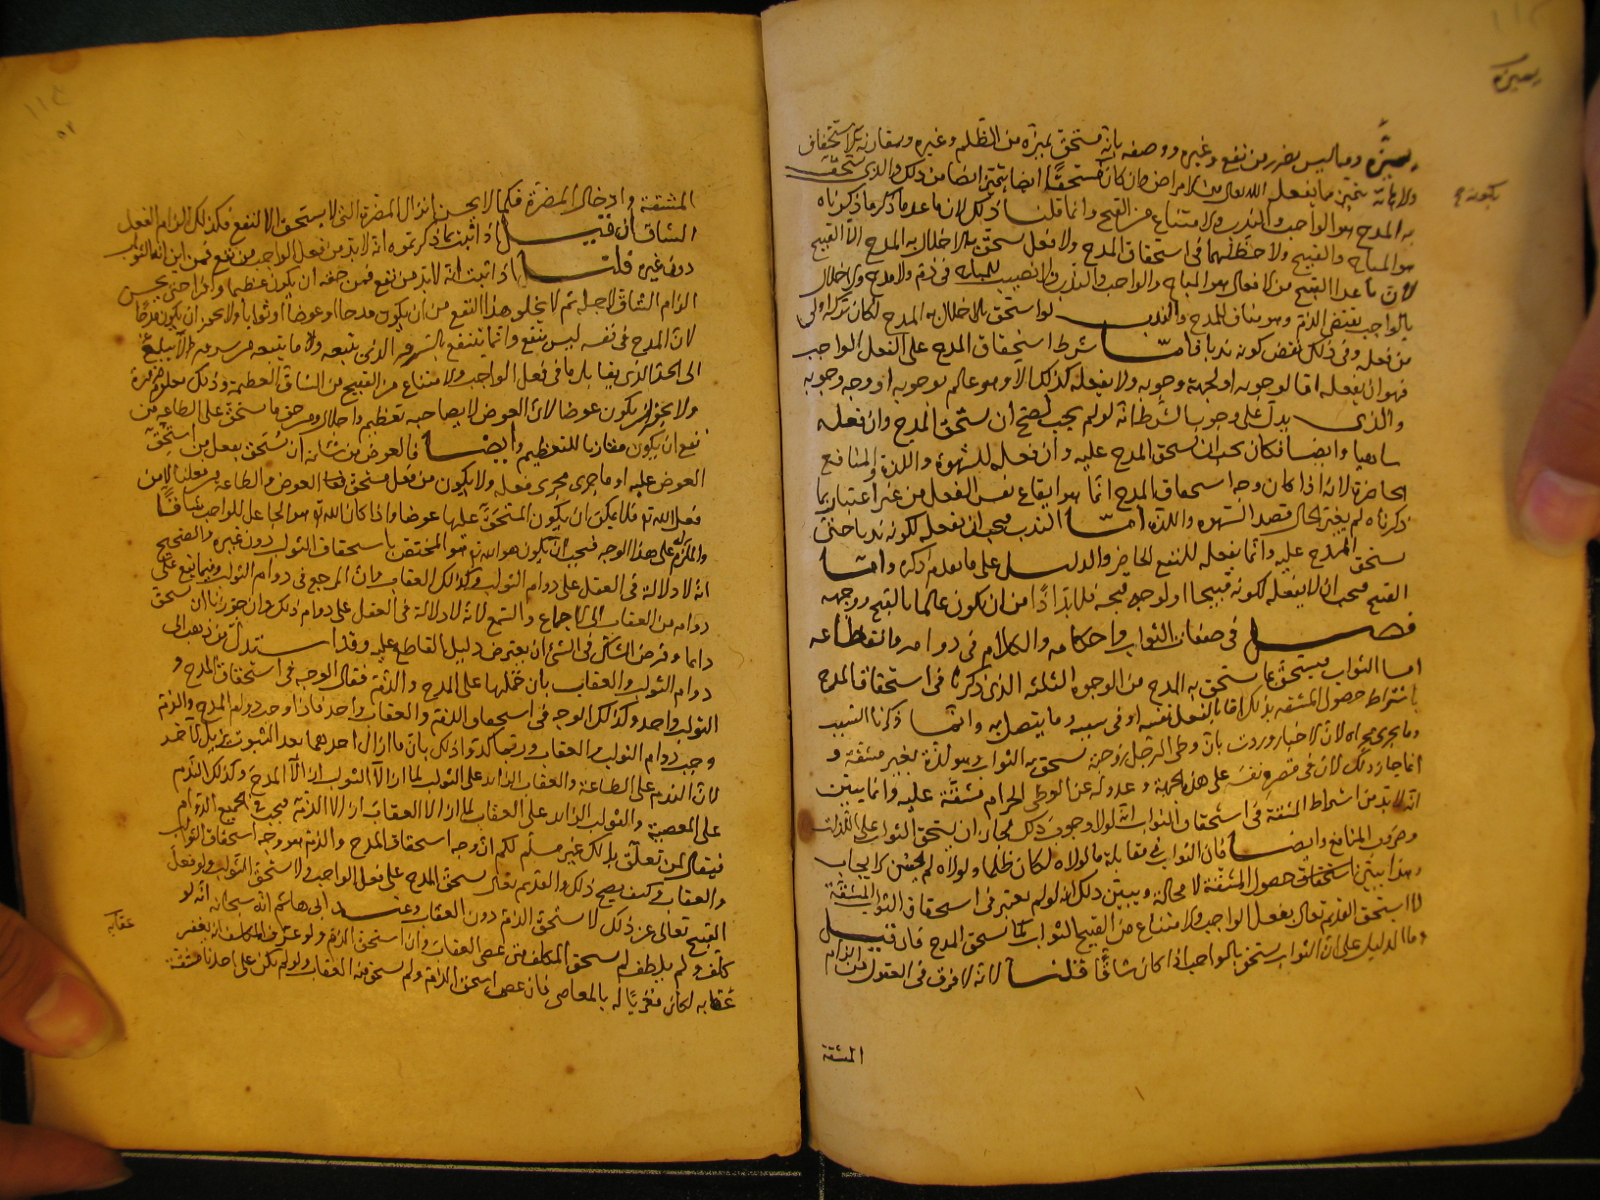 يميزه
يميزه وما ليس بضرر من نفع وغيره ووصفه بانه مستحق يميزه من الظلم وغيره ومقارنة الاستخفاف
والاهانة تميز مما يفعل الله تعالى من الامراض وان كان مستحقا ايضا تتميز ايضا من ذلك والذي يستحق
بكونه
به المدح هو الواجب والندب والامتناع من القبيح وانما قلنا ذلك لان ما عدا ما ذكرناه
هو المباح والقبيح ولا حظ لهما في استحقاق المدح ولا فعل يستحق بالاخلال به المدح الا القبيح
لان ما عدا القبيح من الافعال هو المباح والواجب والندب ولا نصيب للمباح في ذم ولا مدح والاخلال
بالواجب يقتضي الذم وهو مناف للمدح والندب لو استحق بالاخلال به المدح لكان تركه اولى
من فعله وفي ذلك نقض كونه ندبا فاما شرط استحقاق المدح على الفعل الواجب
فهو ان يفعله اما لوجوبه او لجهة وجوبه ولا يفعله كذلك الا وهو عالم بوجوبه او وجه وجوبه
والذي يدل على وجوب ما شرطنا انه لو لم يجب لصح ان يستحق المدح وان فعله
ساهيا وايضا فكان يجب ان يستحق المدح عليه وان فعله للشهوة واللذة والمنافع
الحاضرة لانه اذا كان وجه استحقاق المدح انما هو ايقاع نفس الفعل من غير اعتبار بما
ذكرناه لم يغير الحال قصد الشهوة واللذة اما الندب فيجب ان يفعله لكونه ندبا حتى
يستحق المدح عليه وانما يفعله للنفع الحاضر والدليل على ما تقدم ذكره واما
القبيح فيجب ان لا يفعله لكونه قبيحا او لوجه قبحه فلا بد اذا من ان يكون عالما بالقبح ووجهه
فصل في صفات الثواب واحكامه والكلام في دوامه وانقطاعه
اما الثواب فيستحق بما يستحق به المدح من الوجوه الثلثة الذي ذكرنا في استحقاق المدح
باشتراط حصول المشقة بذلك اما بالفعل نفسه او في سببه وما يتصل به وانما ذكرنا السبب
وما يجري مجراه لان الاخبار وردت بان وطى الرجل زوجته يستحق به الثواب وهو لذة بغير مشقة و
انما جاز ذلك لان في قصر نفسه على هذه الجهة وعدوله عن الوطى الحرام مشقة عليه وانما يبين
انه لا بد من اشتراط المشقة في استحقاق الثواب انه لولا وجوب ذلك لجاز ان يستحق الثواب على اللذات
وضروب المنافع وايضا فان الثواب في مقابلة ما لولاه لكان ظلما ولولاه لم يحسن الايجاب
وهذا يبين استحقاق حصول المشقة لا محالة ويبين ذلك انه لو لم يعتبر في استحقاق الثواب المشقة
لاستحق القديم تعالى بفعل الواجب والامتناع من القبيح الثواب كما يستحق المدح فان قيل
وما الدليل على ان الثواب يستحق بالواجب اذا كان شاقا قلنا لانه لا فرق في العقول بين الزام
المشقة
المشقة وادخال المضرة فكما لا يحسن انزال المضرة التي لا يستحق الا لنفع فكذلك الزام الفعل
الشاق فان قيل اذا ثبت بما ذكرتموه انه لا بد من فعل الواجب من نفع فمن اين انه الثواب
دون غيره قلنا اذا ثبت انه لا بد من نفع فمن حقه ان يكون عظيما وافرا حتى يحسن
الزام الشاق لاجله ثم لا يخلو هذا النفع من ان يكون مدحا او عوضا او ثوابا ولا يجوز ان يكون مدحا
لان المدح في نفسه ليس بنفع وانما ينتفع بالسرور الذي يتبعه وما يتبعه من سرور لا يبلغ
الى الحد الذي يقابل ما في فعل الواجب والامتناع من القبيح من المشاق العظيمة وذلك معلوم ضرورة
ولا يجوز ان يكون عوضا لان العوض لا يصاحبه تعظيم واجلال ومن حق ما يستحق على الطاعة من
نفع ان يكون مقارنا للتعظيم وايضا فالعوض من شانه ان يستحق بفعل من استحق
العوض عليه او ما جرى مجرى فعله ولا يكون من فعل مستحق العوض والطاعة من فعلنا لا من
فعل الله تع فلا يمكن ان يكون المستحق عليها عوضا واذا كان الله تع هو الجاعل للواجب شاقا
والملزم على هذا الوجه فيجب ان يكون هو الله تع هو المختص باستحقاق الثواب دون غيره والصحيح
انه لا دلالة في العقل على دوام الثواب وكذلك العقاب وان المرجع في دوام الثواب وفيما يقع على
دوامه من العقاب الى الاجماع والسمع لانه لا دلالة في العقل على دوام ذلك وان جوزنا ان يستحق
دائما وفرض الشاك في الشئ ان يعترض دليل القاطع عليه وقد استدل من ذهب الى
دوام الثواب والعقاب بان حملها على المدح والذم فقال الوجه في استحقاق المدح و
الثواب واحد وكذلك الوجه في استحقاق الذم والعقاب واحد فاذا وجد دوام المدح والذم
وجب دوام الثواب والعقاب وربما اكدوا ذلك بان ما ازال احدهما بعد الثبوت يزيل الاخر
لان الندم على الطاعة والعقاب الزائد على الثواب لما ازالا الثواب ازالا المدح وكذلك الندم
على المعصية والثواب الزائد على العقاب لما ازالا العقاب ازالا الذم فيجب في الجميع الدوام
فيقال لمن تعلق بذلك غير مسلم لكم ان وجه استحقاق المدح والذم هو وجه استحقاق الثواب
والعقاب كيف يصح ذلك والقديم تعالى يستحق المدح على فعل الواجب ولا يستحق الثواب ولو فعل
القبيح تعالى عن ذلك لاستحق الذم دون العقاب وعند ابي هاشم انه سبحانه انه لو
كلف ولم يلطف لم يستحق المكلف متى عصى العقاب وان استحق الذم ولو عرف المكلف انه يغفر
عقابه
عقابه لكان مغريا له بالمعاصي فان عصى استحق الذم ولم يستحق منه العقاب ولو لم يكن على احدنا مشقة